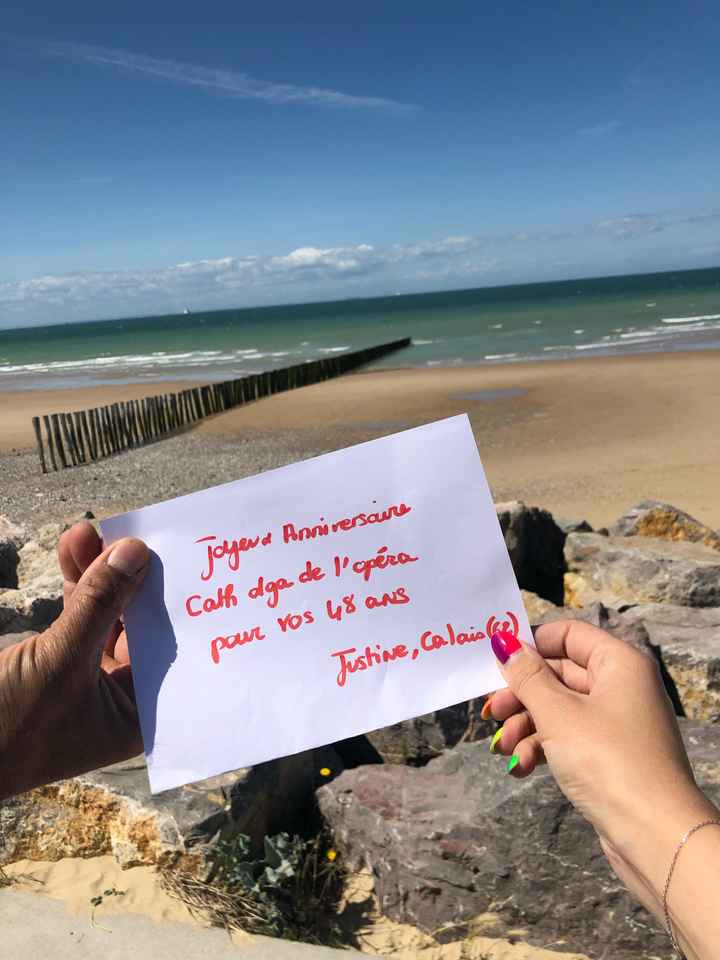 Joyeux Anniversaire
Cath olga de l'opéra
pour vos 48 ans
Justine, Calais